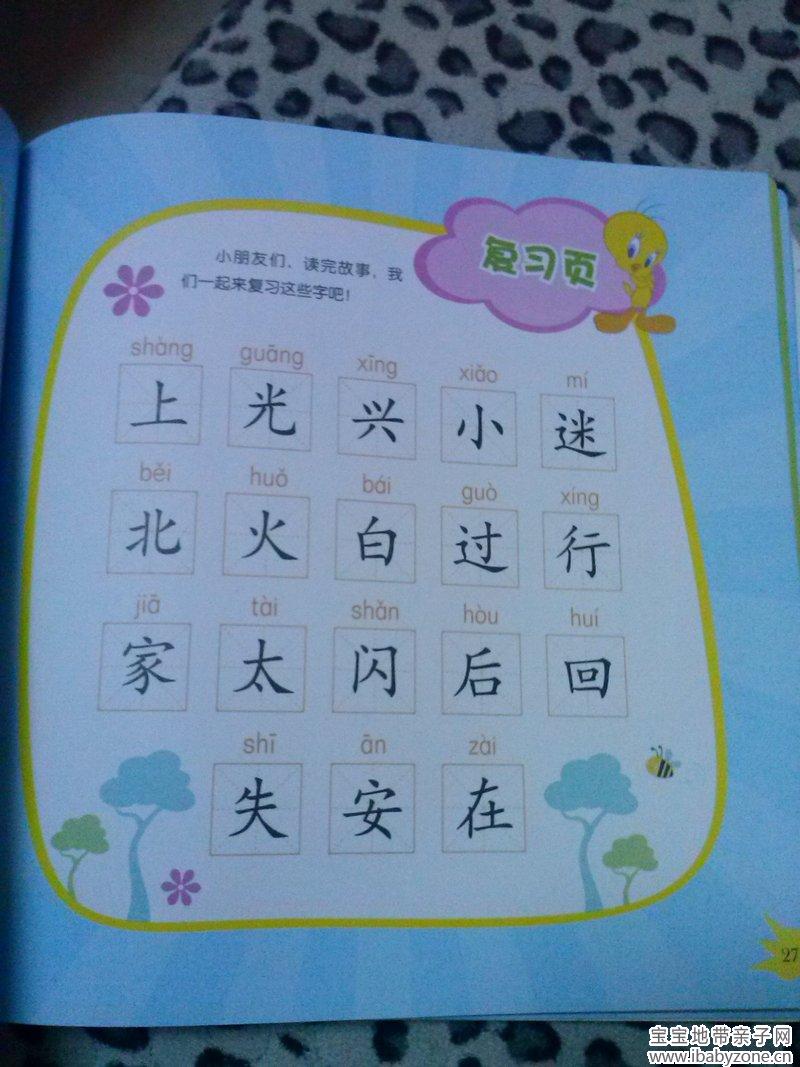 复习页
小朋友们、读完故事，我
们一起来复习这些字吧！
shàng guāng xīng xiǎo mí
上 光 兴 小 迷
běi huǒ bái guò xíng
北 火 白 过 行
jiā tài shǎn hòu huí
家 太 闪 后 回
shī ān zài
失 安 在
27
宝宝地带亲子网
www.ibabyzone.cn